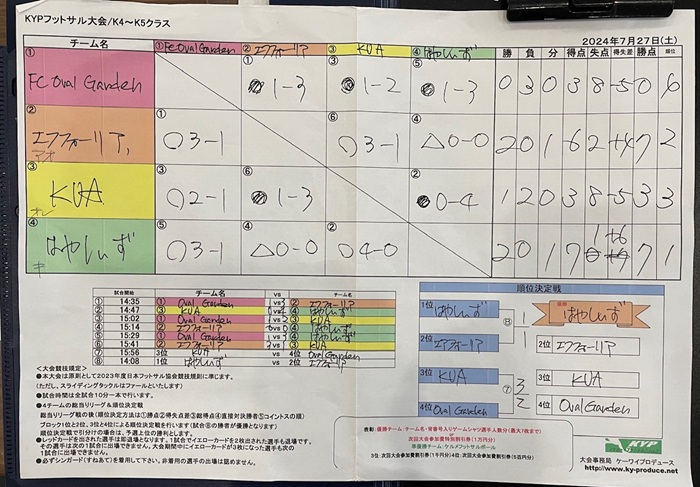 KYPフットサル大会/K4～K5クラス
2024年7月27日(土)
チーム名 ①Fc Oval Garden ②エフフォーリア ③KUA ④はやしいず 勝 負 分 得点 失点 得失差 勝点 順位
① FC Oval Garden ①●1-3 ③●1-2 ⑤●1-3 0 3 0 3 8 -5 0 6
② エフフォーリア, アオ ①○3-1 ⑥○3-1 ④△0-0 2 0 1 6 2 +4 7 2
③ KUA オレ ③○2-1 ⑥●1-3 ②●0-4 1 2 0 3 8 -5 3 3
④ はやしいず キ ⑤○3-1 ④△0-0 ②○4-0 2 0 1 7 1 +6 7 1
試合開始 チーム名 vs チーム名
① 14:35 ① Oval Garden 1 vs 3 ② エフフォーリア
② 14:47 ③ KUA 0 vs 4 ④ はやしいず
③ 15:02 ① Oval Garden 1 vs 2 ③ KUA
④ 15:14 ② エフフォーリア 0 vs 0 ④ はやしいず
⑤ 15:29 ① Oval Garden 1 vs 3 ④ はやしいず
⑥ 15:41 ② エフフォーリア 3 vs 1 ③ KUA
⑦ 15:56 3位 KUA vs 4位 Oval Garden
⑧ 14:08 1位 はやしいず vs 2位 エフフォーリア
順位決定戦
1位 はやしいず ⑧ 1 優勝 はやしいず
2位 エフフォーリア 1 2位 エフフォーリア
3位 KUA ⑦ 3 3位 KUA
4位 Oval Garden 2 4位 Oval Garden
＜大会競技規定＞
●本大会は原則として2023年度日本フットサル協会競技規則に準じます。
(ただし、スライディングタックルはファールといたします)
●試合時間は全試合10分一本で行います。
●4チームの総当りリーグ＆順位決定戦
総当りリーグ戦の後(順位決定方法は①勝点②得失点差③総得点④直接対決勝者⑤コイントスの順)
ブロック1位と2位、3位と4位による順位決定戦を行います(試合⑧の勝者が優勝となります)
順位決定戦で引分けの場合は、予選上位の勝利とします。
●レッドカードを出された選手は即退場となります。1試合でイエローカードを2枚出された選手も退場です。
その選手は次の1試合に出場できません。大会期間中にイエローカードが3枚になった選手も次の
1試合に出場できません。
●必ずシンガード(すねあて)を着用して下さい。非着用の選手の出場は認めません。
表彰:優勝チーム・チーム名・背番号入りゲームシャツ選手人数分(最大7枚まで)
次回大会参加費特別割引券(1万円分)
準優勝チーム・ケルメフットサルボール
次回大会参加費割引券
3位:次回大会参加費割引券(1千円分)4位:次回大会参加費割引券(5百円分)
KYP
大会事務局 ケーワイプロデュース
http://www.ky-produce.net